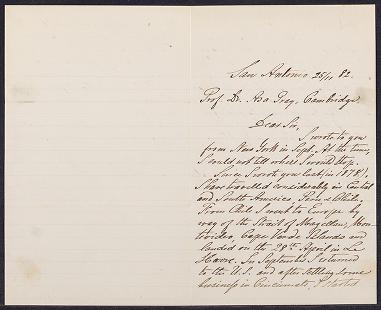 San Antonio 25/11 82.
Prof. Dr. Asa Gray, Cambridge
Dear Sir,
I wrote to you
from New York in Sept. At the time,
I could not tell where I would stop.
Since I wrote you last (in 1878),
I have travelled considerably in Central
and South America, Peru & Chile.
From Chile I went to Europe by
way of the Strait of Magellan, Mon-
tevideo, Cape Verde Islands and
landed on the 28th April in Le
Havre. In September I returned
to the U.S. and after settling some
business in Cincinnati, I started